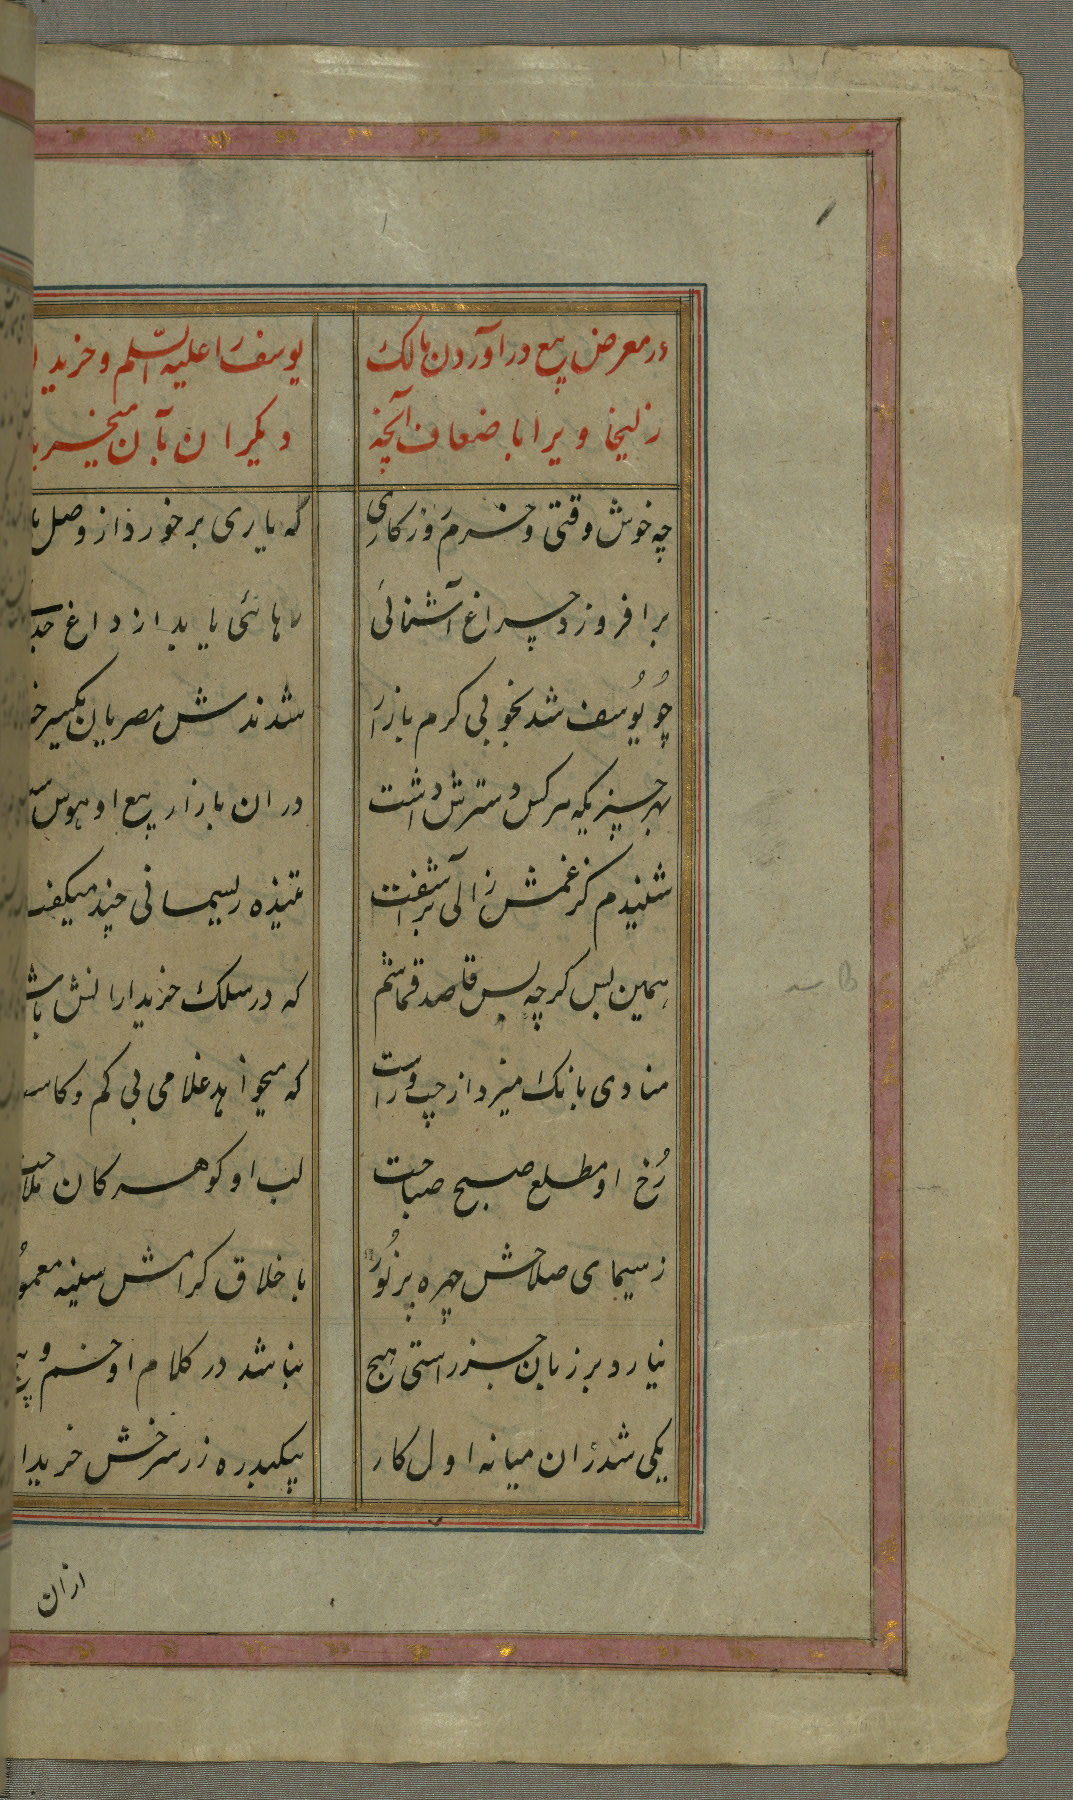 در معرض بیع در آوردن مالک یوسف را علیه السلم و خریدن
زلیخا ویرا باضعاف آنچه دیگران بآن میخرید
چه خوش وقتی و خرم روزگاری که یاری برخورد از وصل
برافروزد چراغ آشنائی رهائی یابد از داغ
چو یوسف شد بخوبی گرم بازار شدندش مصریان یکسر
بهر چیزیکه هر کس دسترس داشت در ان بازار بیع او هوس
شنیدم کز غمش زالی برآشفت تنیده ریسمانی چند میگفت
همین بس گرچه بس قاصد قماشم که در سلک خریدارانش باشم
منادی بانک میزد از چپ و راست که میخواهد غلامی بی کم و کاست
رخ او مطلع صبح صباحت لب او گوهر کان ملاحت
ز سیمای صلاحش چهره پر نور باخلاق کرامش سینه معمور
نیارد بر زبان جز راستی هیچ نباشد در کلام او خم و پیچ
یکی شد زان میانه اول کار بیکبدره زر سرخش خریدار
ازان